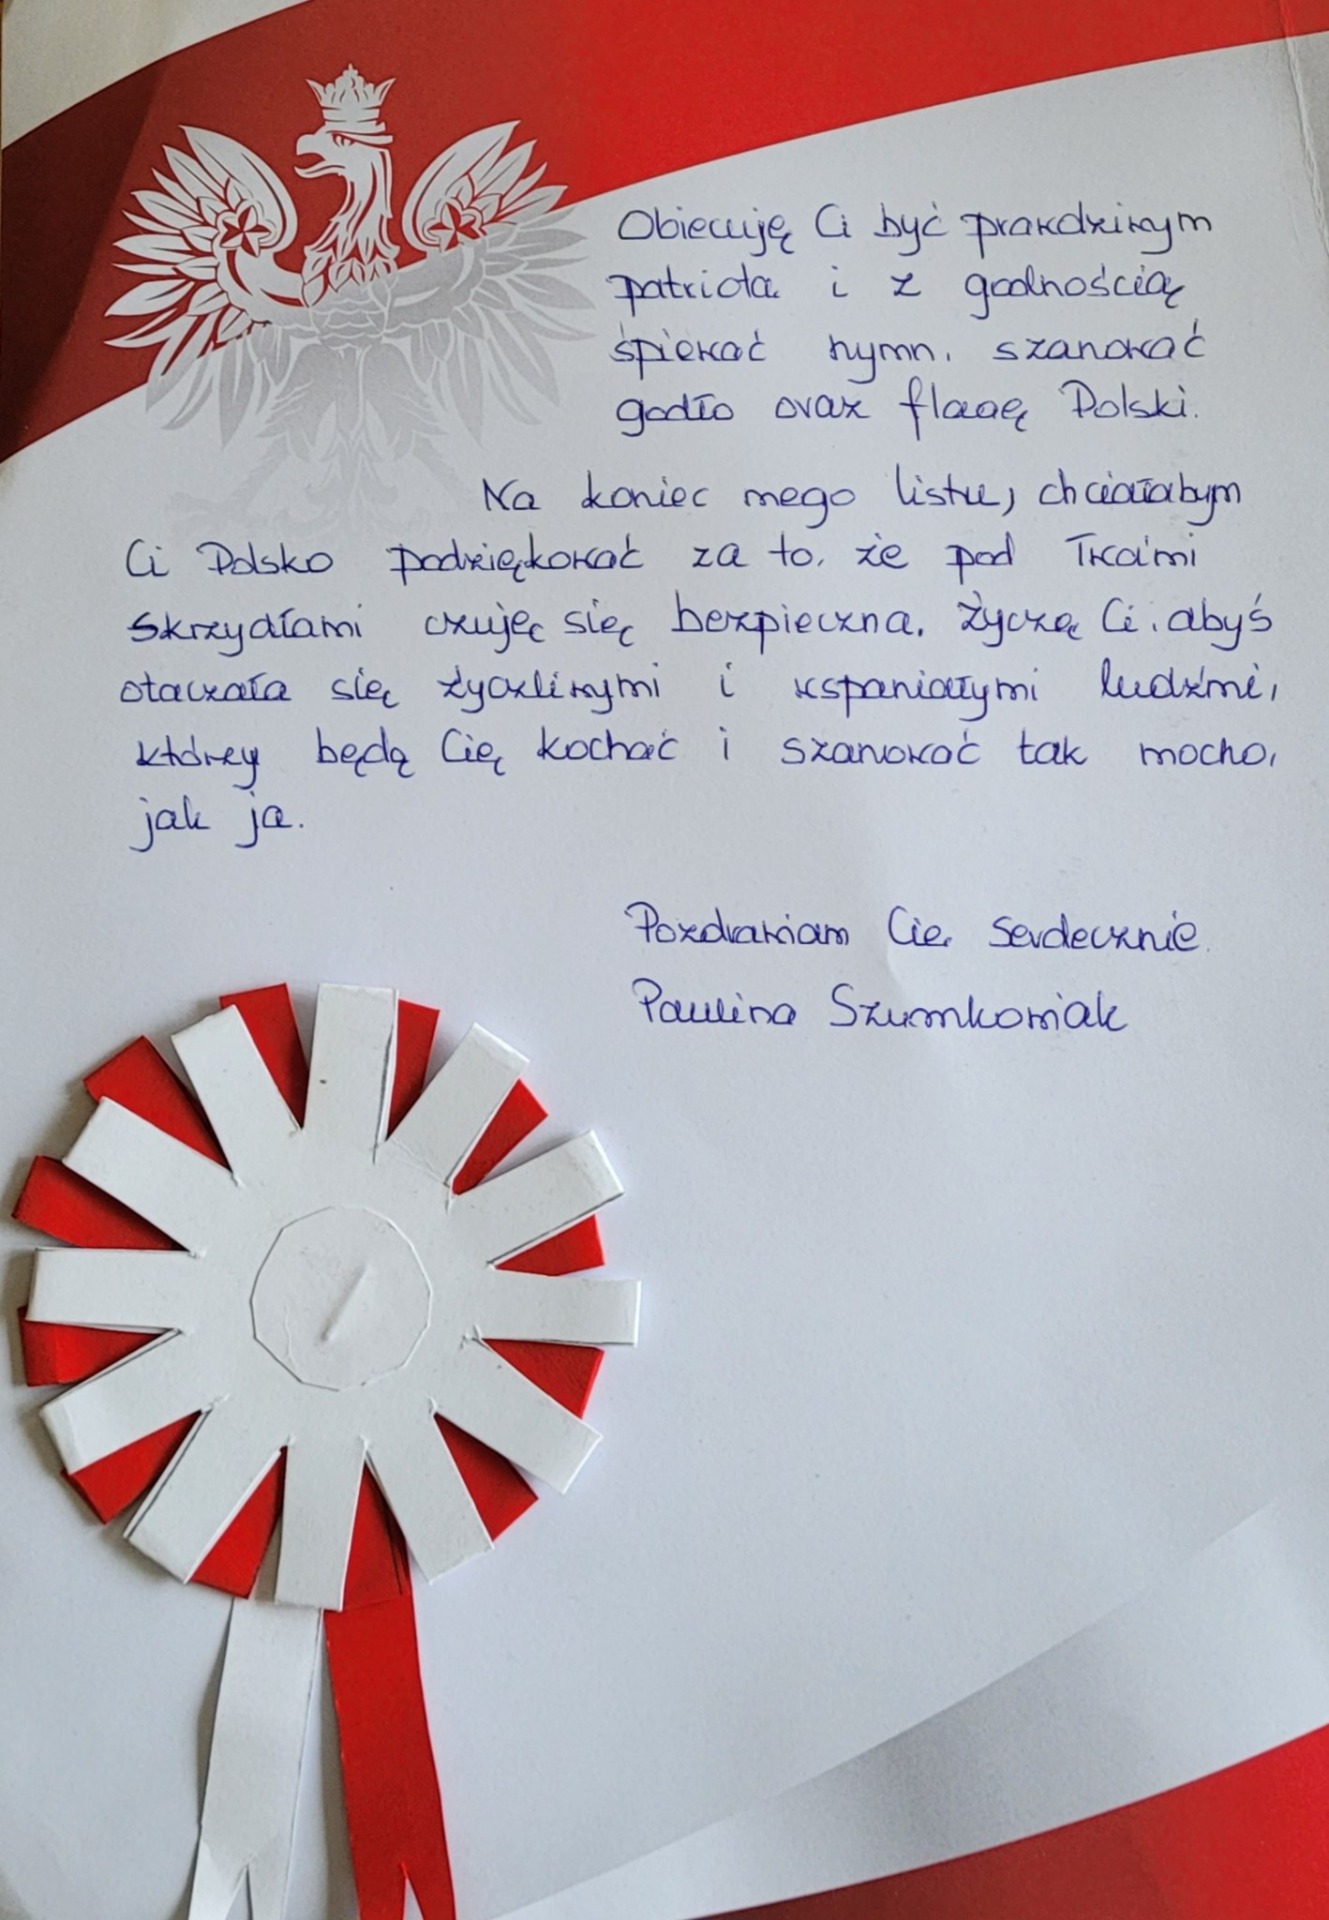 Obiecuję Ci być prawdziwym
patriotą i z godnością
śpiewać hymn, szanować
godło oraz flagę Polski.
Na koniec mego listu, chciałabym
Ci Polsko podziękować za to, że pod Twoimi
skrzydłami czuję się bezpieczna. Życzę Ci, abyś
otaczała się życzliwymi i wspaniałymi ludźmi,
którzy będą Cię kochać i szanować tak mocno,
jak ja.
Pozdrawiam Cię serdecznie
Paulina Szumkowiak